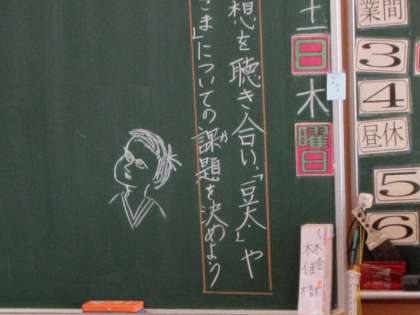 業間
3
4
昼休
5
6
日
木
曜
日
想を聴き合い、「豆太」や
さま」についての課題を決めよう